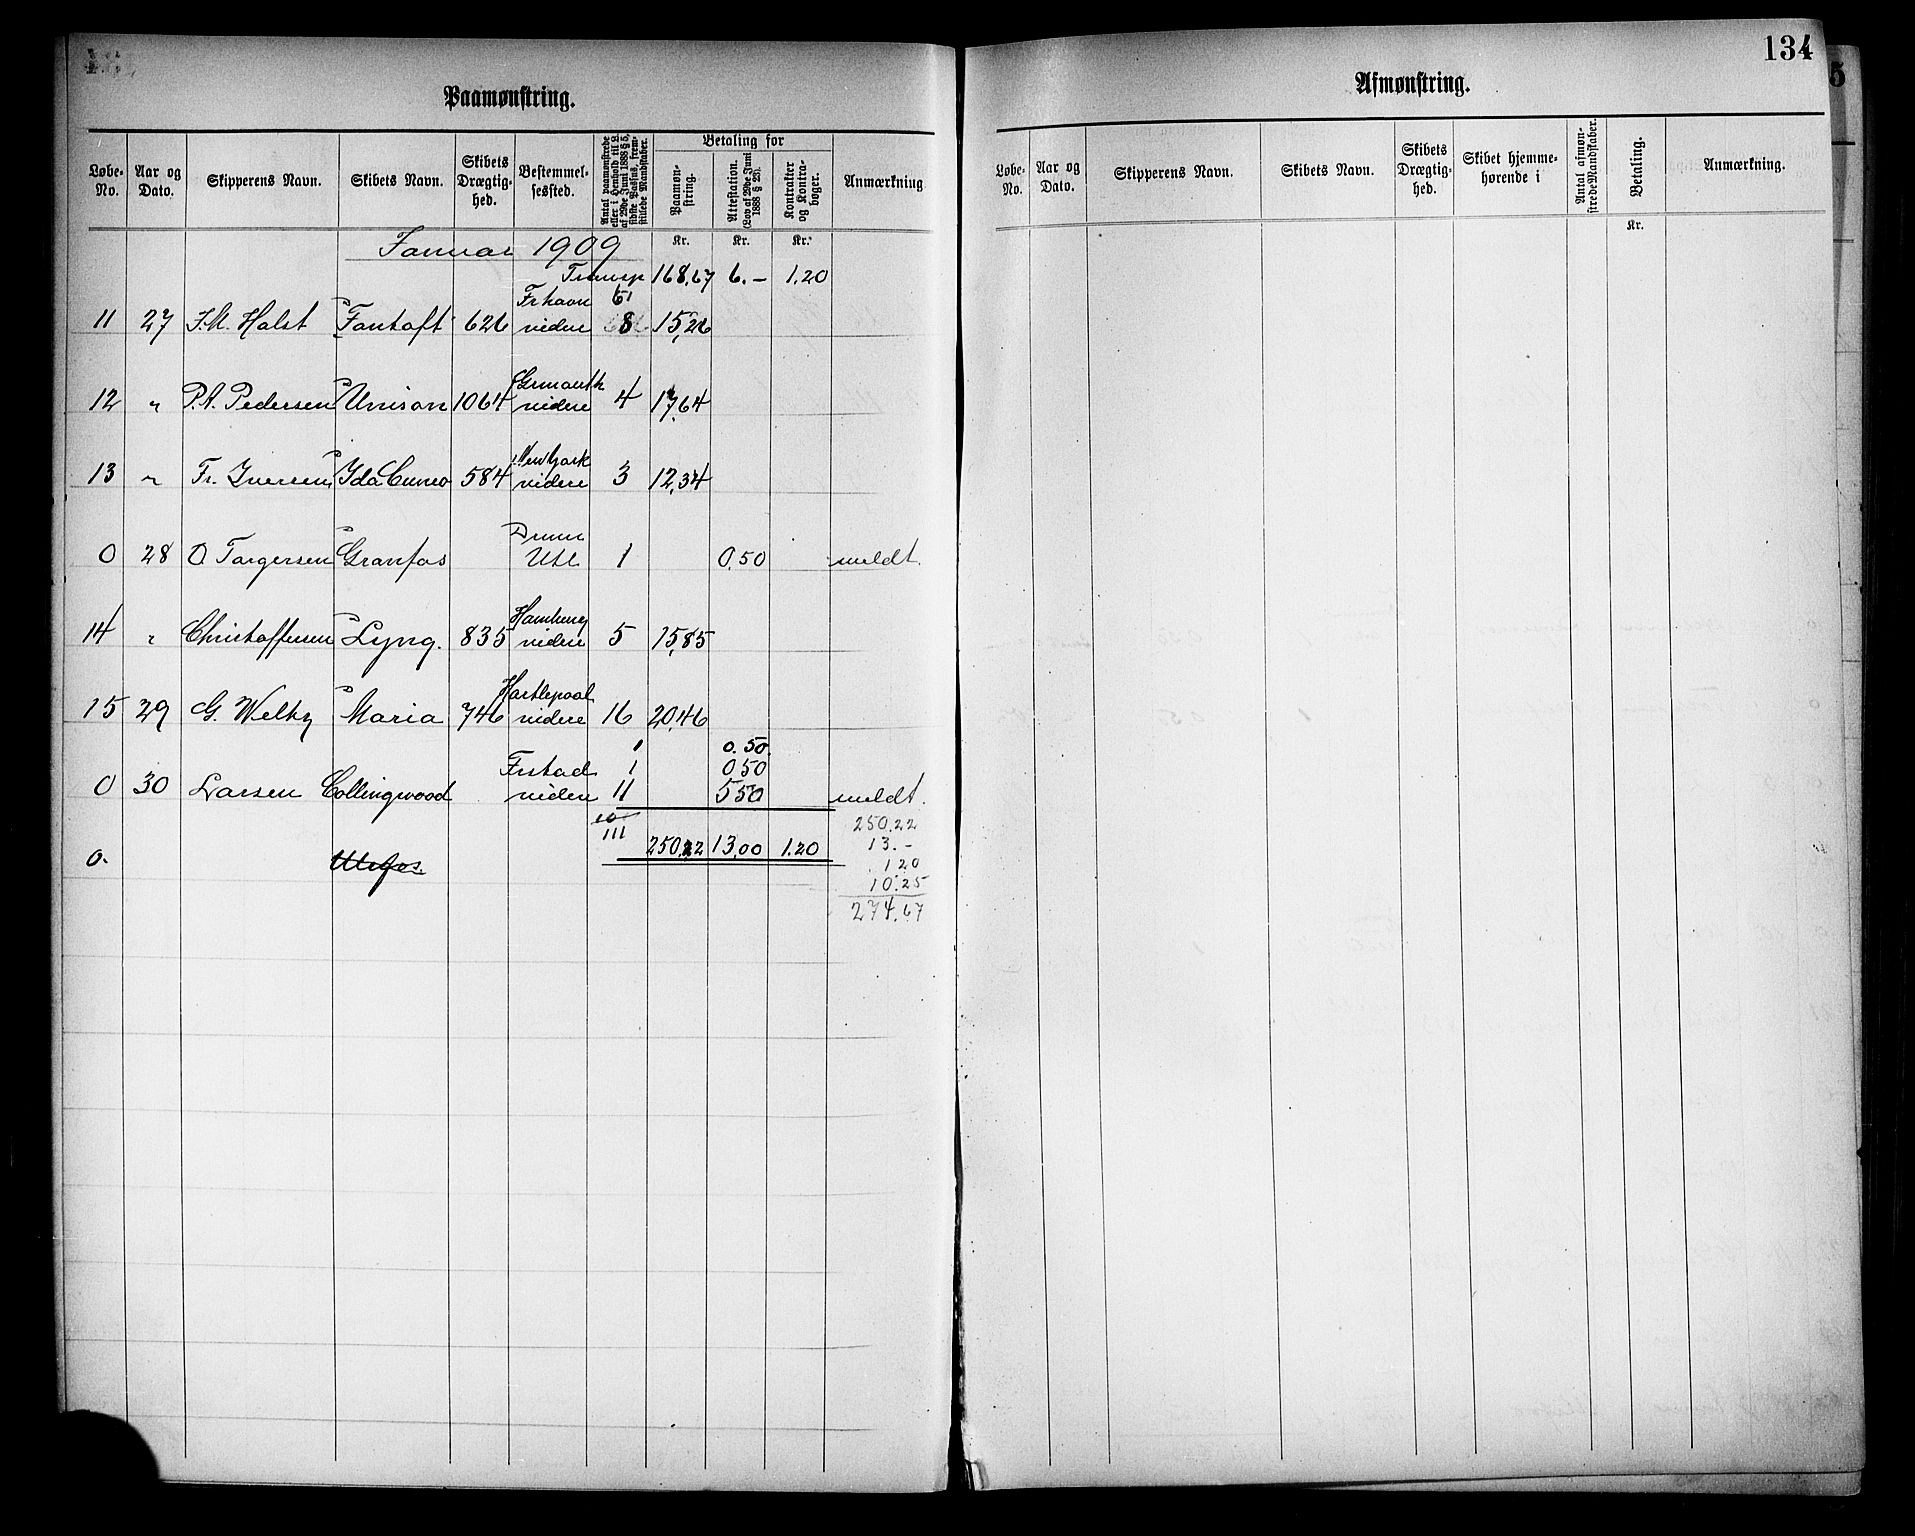 134
Paamønstring.
Løbe-No. Aar og Dato. Skipperens Navn. Skibets Navn. Skibets Drægtighed. Bestemmelsessted. Antal paamønstrede eller i Henhold til L. af 29de Juni 1888 § 5, sidste Passus, fremstillede Mandskaber. Betaling for Paamønstring. Attestation. (Lov af 29de Juni 1888 § 25). Kontrakter og Kontrabøger. Anmærkning
Januar 1909 Kr. Kr. Kr.
Transp 168,67 6.— 1.20
Frhavn 51
11 27 J. M. Holst Fantoft 626 videre 8 15,26
12 " P. A. Pedersen Unison 1064 videre 4 17,64
New York
13 " Fr. Iversen Ida Cuneo 584 videre 3 12,34
0 28 O Torgersen Granfos Utl 1 0.50 meldt.
Hamburg
14 " Christoffersen Lyng. 835 videre 5 15,85
Hartlepool
15 29 G. Welby Maria 746 videre 16 20,46
1 0.50.
Frstad 1 0 50
0 30 Larsen Collingwood videre 11 5 50 meldt.
111 250,22 13,00 1.20
250.22
13.-
1 20
10.25
274.67
0. Ulefos.
Afmønstring.
Løbe-No. Aar og Dato. Skipperens Navn. Skibets Navn. Skibets Drægtighed. Skibet hjemmehørende i Antal afmønstrede Mandskaber. Betaling. Anmærkning.
Kr.
5